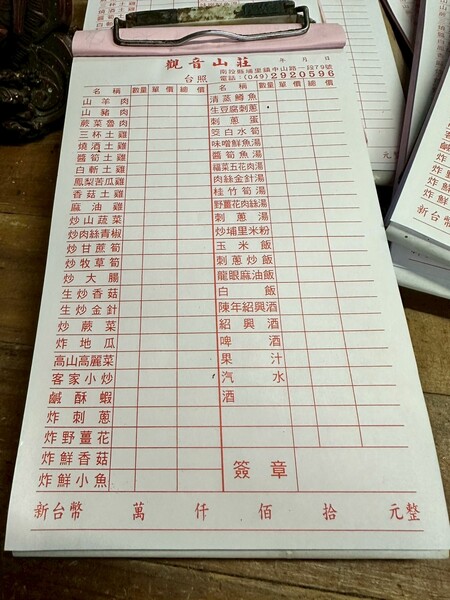 觀音山莊
年 月 日
台照
南投縣埔里鎮中山路一段79號
電話：(049)2920596
名稱 數量 單價 總價
山羊肉
山豬肉
蕨菜魯肉
三杯土雞
燒酒土雞
醬筍土雞
白斬土雞
鳳梨苦瓜雞
香菇土雞
麻油雞
炒山蔬菜
炒肉絲青椒
炒甘蔗筍
炒牧草筍
炒大腸
生炒香菇
生炒金針
炒蕨菜
炸地瓜
高山高麗菜
客家小炒
鹹酥蝦
炸刺蔥
炸野薑花
炸鮮香菇
炸鮮小魚
名稱 數量 單價 總價
清蒸鱒魚
生豆腐刺蔥
刺蔥蛋
筊白水筍
味噌鮮魚湯
醬筍魚湯
福菜五花肉湯
肉絲金針湯
桂竹筍湯
野薑花肉絲湯
刺蔥湯
炒埔里米粉
玉米飯
刺蔥炒飯
龍眼麻油飯
白飯
陳年紹興酒
紹興酒
啤酒
果汁
汽水
酒
簽章
新台幣 萬 仟 佰 拾 元整
元整
炸鮮
炸鮮
新台幣